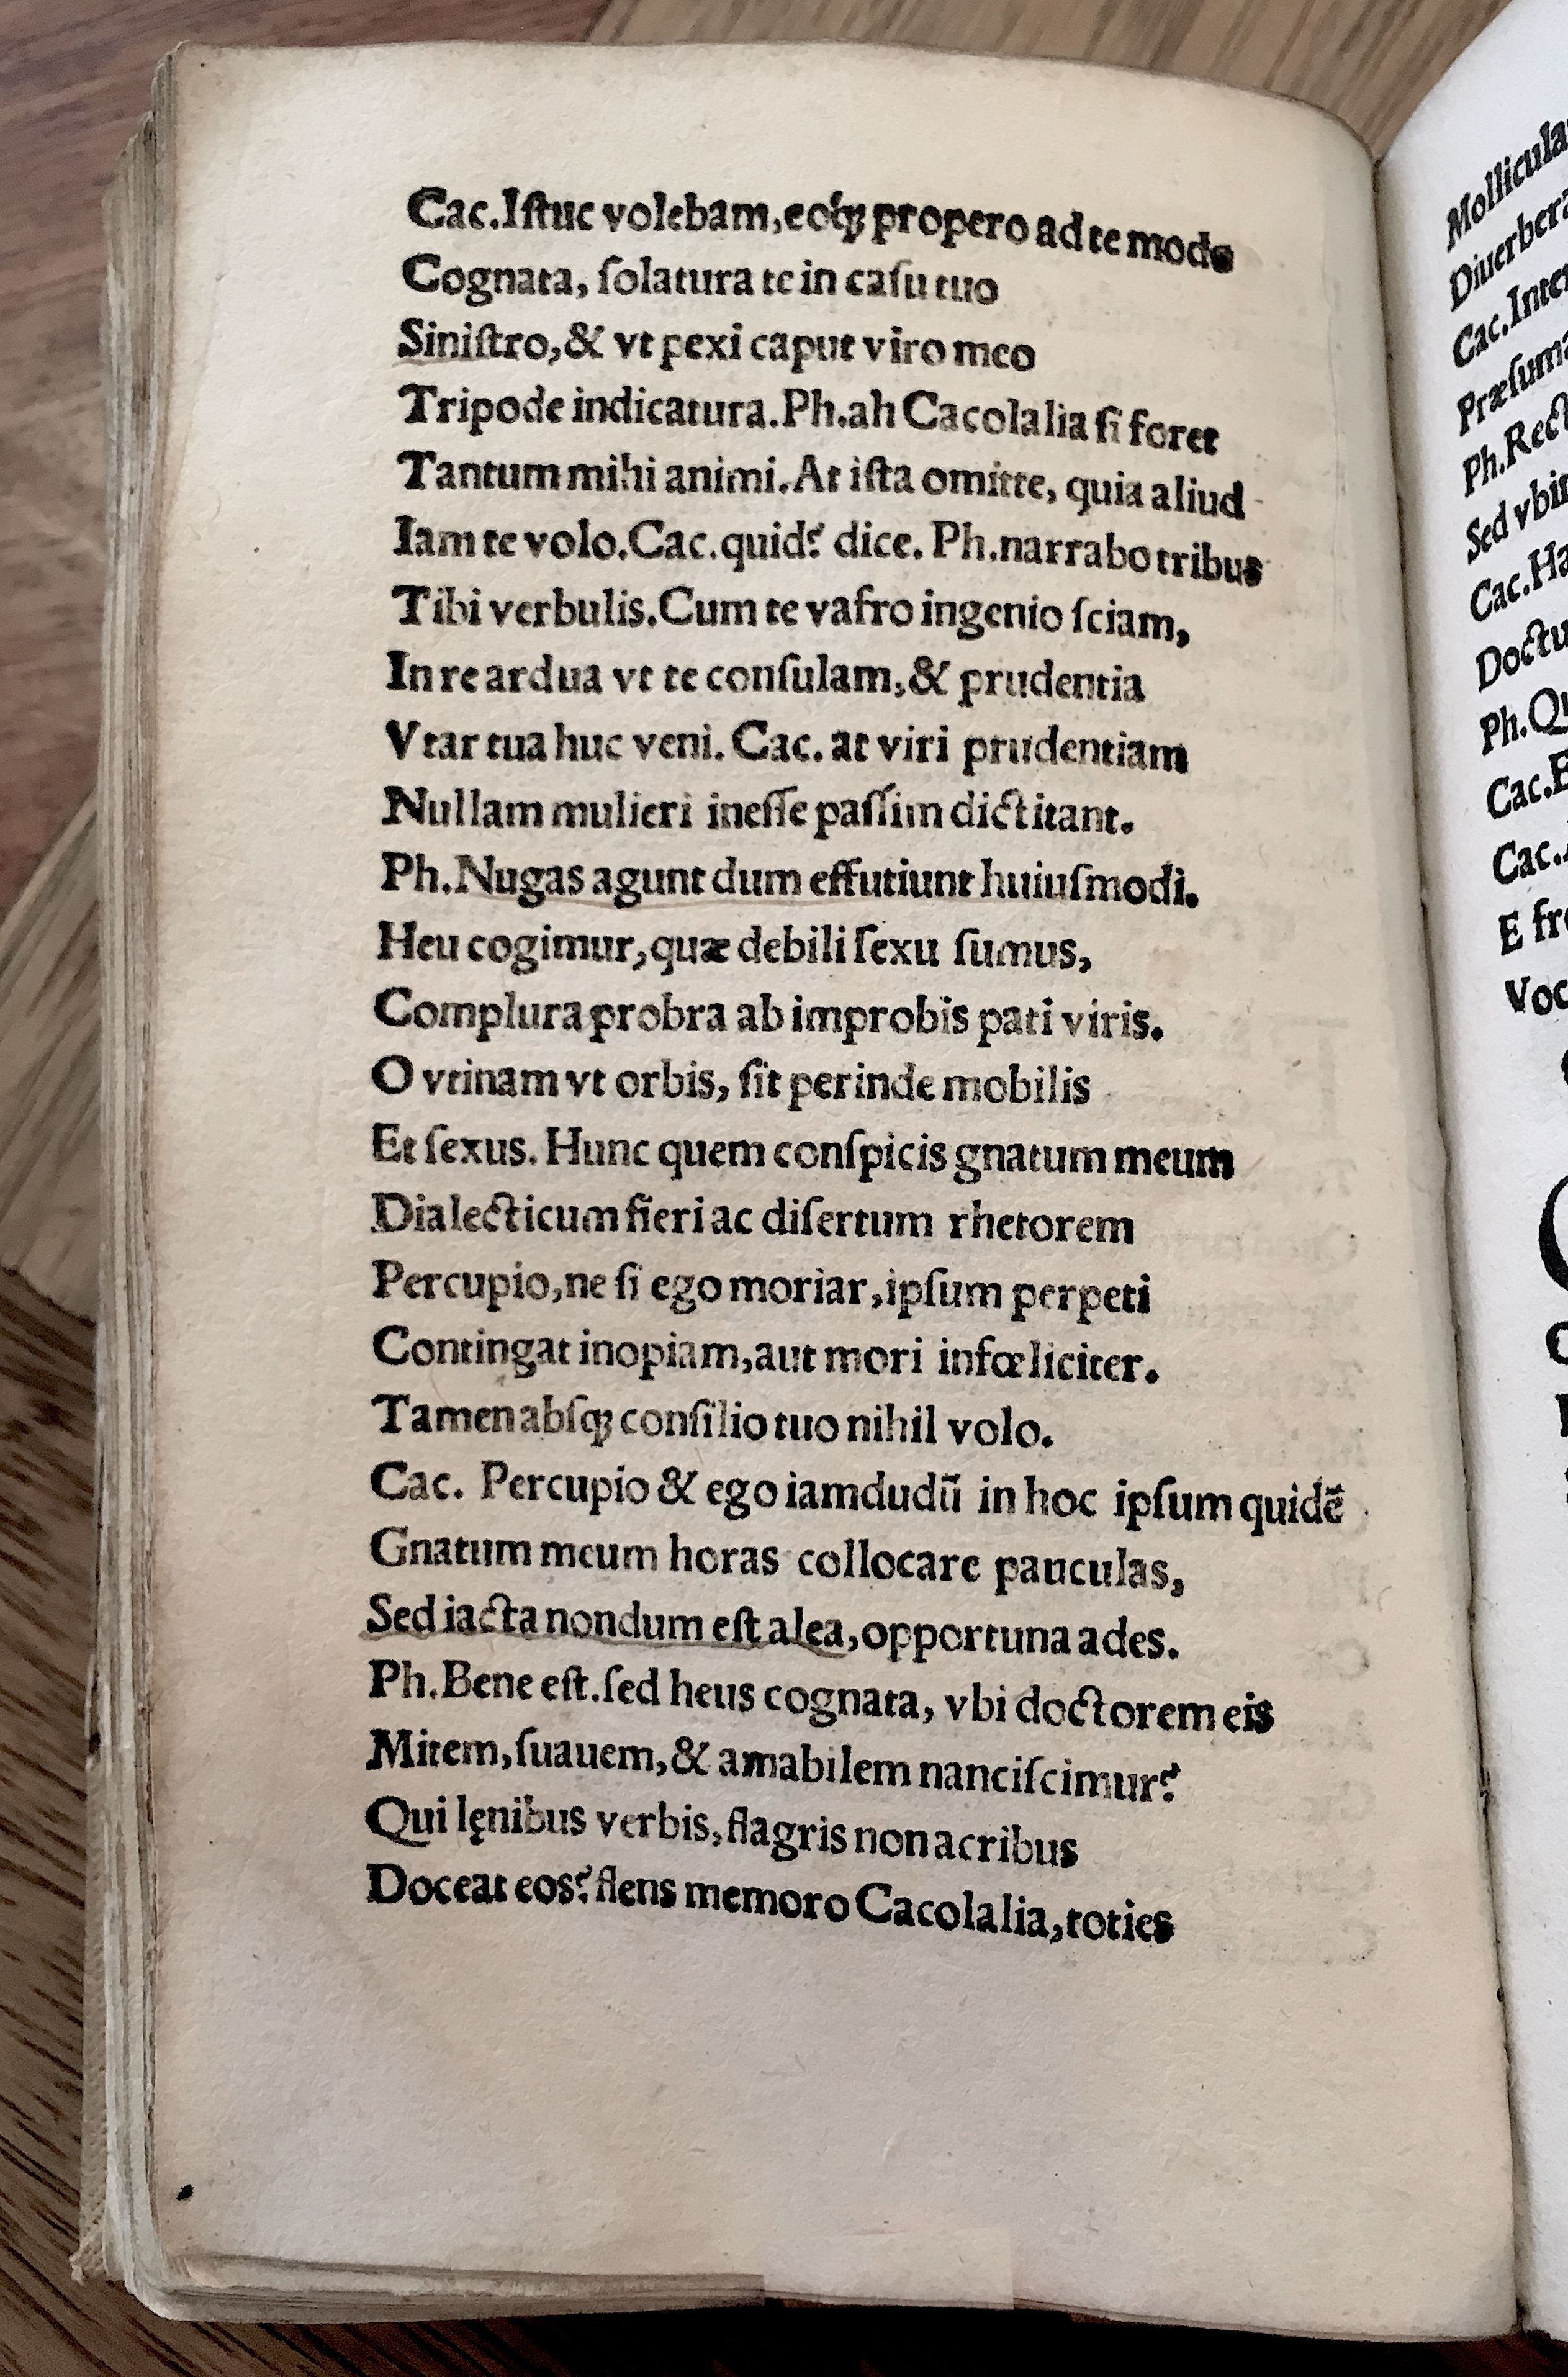 Cac.Iſtuc volebam,eoqꝫ propero ad te modo
Cognata, ſolatura te in caſu tuo
Siniſtro,& vt pexi caput viro meo
Tripode indicatura.Ph.ah Cacolalia ſi foret
Tantum mihi animi.At iſta omitte, quia aliud
Iam te volo.Cac.quid? dice. Ph.narrabo tribus
Tibi verbulis.Cum te vafro ingenio ſciam,
In re ardua vt te conſulam,& prudentia
Vtar tua huc veni. Cac. at viri prudentiam
Nullam mulieri ineſſe paſſim dictitant.
Ph.Nugas agunt dum effutiunt huiuſmodi.
Heu cogimur,quæ debili ſexu ſumus,
Complura probra ab improbis pati viris.
O vtinam vt orbis, ſit perinde mobilis
Et ſexus. Hunc quem conſpicis gnatum meum
Dialecticum fieri ac diſertum rhetorem
Percupio,ne ſi ego moriar,ipſum perpeti
Contingat inopiam,aut mori infœliciter.
Tamen abſqꝫ conſilio tuo nihil volo.
Cac. Percupio & ego iamdudū in hoc ipſum quidē
Gnatum meum horas collocare pauculas,
Sed iacta nondum eſt alea,opportuna ades.
Ph.Bene eſt.ſed heus cognata, vbi doctorem eis
Mitem,ſuauem,& amabilem nanciſcimur?
Qui lęnibus verbis,flagris non acribus
Doceat eos? flens memoro Cacolalia,toties
Diuerbera
Cac.Inte
Præſuma
Ph.Rect
Sed vbi
Cac.Ha
Doctu
Ph.Qu
Cac.E
Cac.
E fr
Voc